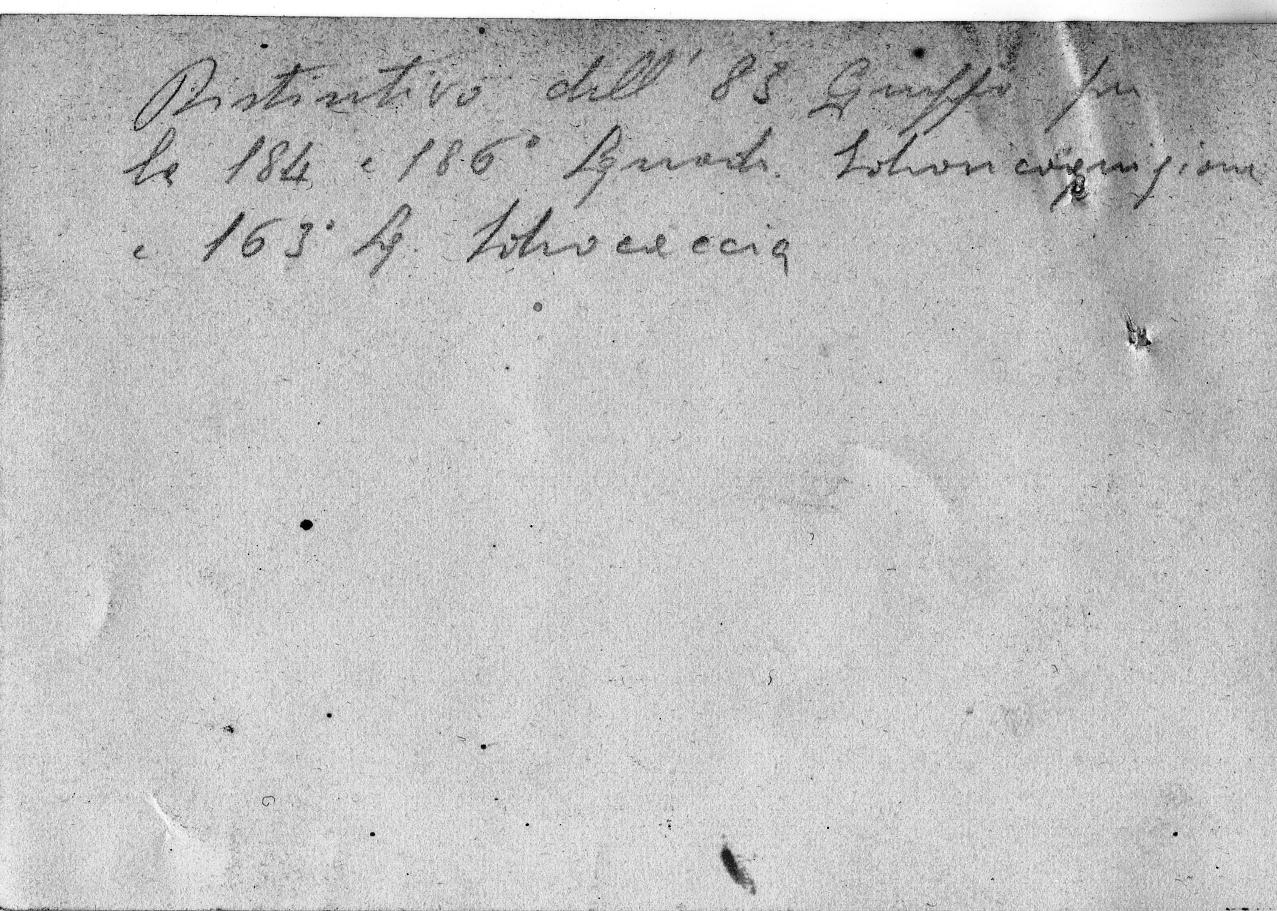 Distintivo dell' 83 Gruppo per
la 184 e 186° Squadr. Idroricognizione
e 163° Sq. Idrocaccia